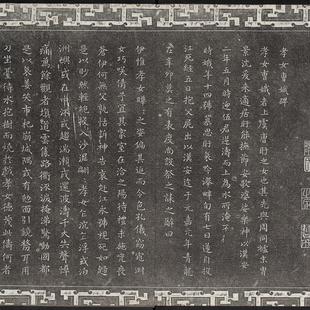 孝女曹娥碑
孝女曹娥者上虞曹盱之女也其先與周同祖末冑
景沉爰來適居盱能撫節安歌婆娑樂神以漢安
二年五月時迎伍君逆濤而上為水所淹不得其屍
時娥年十四號慕思盱哀吟澤畔旬有七日遂自投
江死經五日抱父屍出以漢安迄于元嘉元年青龍
在辛卯莫之有表度尚設祭誄之辭曰
伊惟孝女曄曄之姿偏其返而令色孔儀窈窕淑
女巧笑倩兮宜其家室在洽之陽待禮未施嗟喪
蒼伊何無父孰怙訴神告哀赴江永號視死如歸
是以眇然輕絕投入沙泥翩翩孝女乍沉乍浮或泊
洲嶼或在中流或趨湍瀨或還波濤千夫失聲悼
痛萬餘觀者填道雲集路衢流淚掩涕驚慟國都
是以哀姜哭市杞崩城隅或有尅面引鏡剺耳用
刀坐臺待水抱樹而燒於戲孝女德茂此儔何者